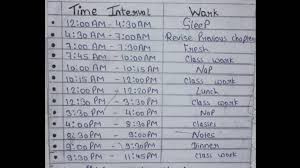 Time Interval Work
12:00 AM - 4:30 AM Sleep
4:30 AM - 7:00 AM Revise Previous chapter
7:00 AM - 7:30 AM Fresh
7:45 AM - 10:00 AM Class work
10:00 AM - 10:15 AM Nap
10:15 AM - Class work
12:00 PM - Lunch
PM - class work
PM - Nap
4:00 PM - classes
8:30 PM - 9:00 PM Notes
9:00 PM - 9:30 PM Dinner
9:30 PM - 11:45 PM class work